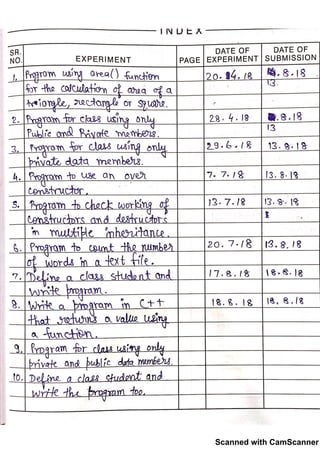 INDEX
SR. NO. EXPERIMENT PAGE DATE OF EXPERIMENT DATE OF SUBMISSION
1. Program using area() function 20. 14. 18 .8.18
for the calculation of area of a 13.
triangle, rectangle or square.
2. Program for class using only 28. 4. 18 .8.18
Public and Private members. 13
3. Program for class using only 29.6.18 13. 8. 18
private data members.
4. Program to use an over 7. 7. 18 13. 8. 18
constructor.
5. Program to check working of 13. 7. 18 13. 8. 18
constructors and destructors
in multiple inheritance.
6. Program to count the number 20. 7. 18 13. 8. 18
of words in a text file.
7. Define a class student and 17. 8. 18 18. 8. 18
write program.
8. Write a program in C++ 18. 8. 18 18. 8. 18
that returns a value using
a function.
9. Program for class using only
private and public data members.
10. Define a class student and
write the program too.
Scanned with CamScanner